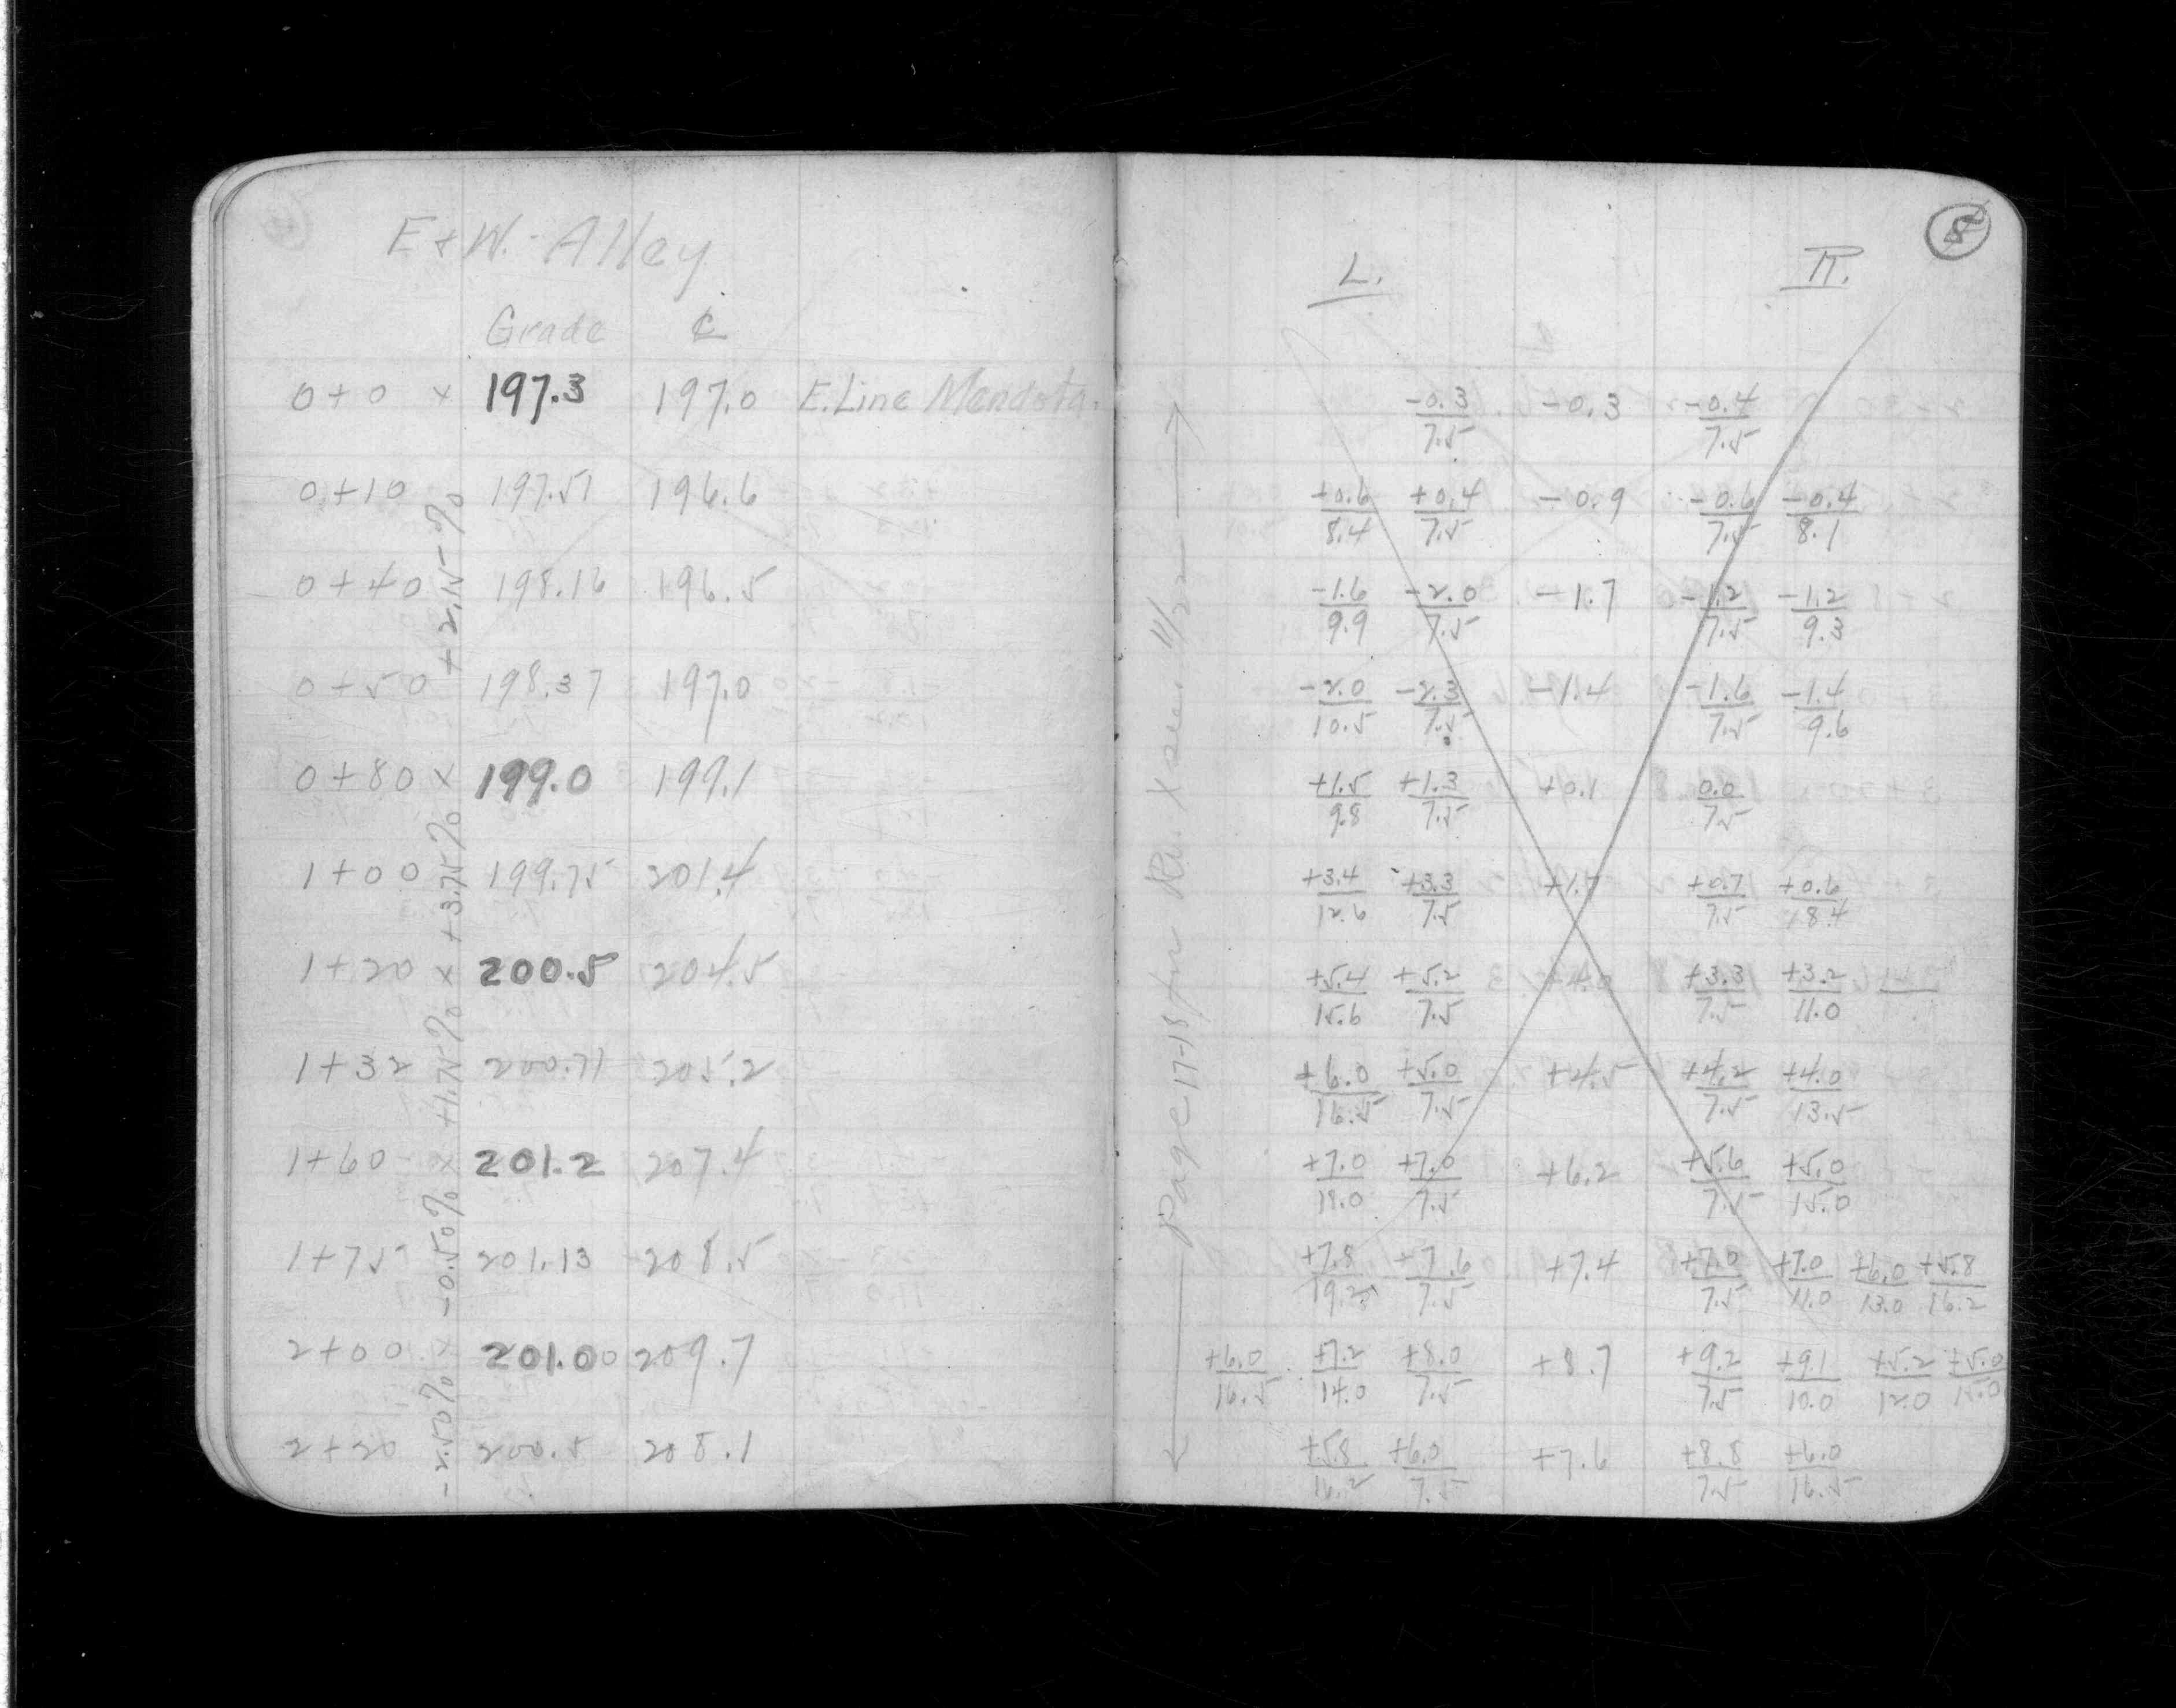 E & W. - Alley
Grade ℄
0+0 x 197.3 197.0 E. Line Mendota.
0+10 197.51 196.6
0+40 198.16 196.5
0+50 198.37 197.0
0+80 x 199.0 199.1
1+00 199.75 201.4
1+20 x 200.5 204.5
1+32 200.71 205.2
1+60 x 201.2 207.4
1+75 201.13 208.5
2+00 x 201.00 209.7
2+20 200.5 208.1
+2.15%
+3.75%
+1.75%
-0.50%
-2.50%
5
L. R.
-0.3/7.5 -0.3 -0.4/7.5
+0.6/8.4 +0.4/7.5 -0.9 -0.6/7.5 -0.4/8.1
-1.6/9.9 -2.0/7.5 -1.7 -1.2/7.5 -1.2/9.3
-2.0/10.5 -2.3/7.5 -1.4 -1.6/7.5 -1.4/9.6
+1.5/9.8 +1.3/7.5 +0.1 0.0/7.5
+3.4/12.6 +3.3/7.5 +1.7 +0.7/7.5 +0.6/8.4
+5.4/15.6 +5.2/7.5 +4.0 +3.3/7.5 +3.2/11.0
+6.0/16.5 +5.0/7.5 +4.5 +4.2/7.5 +4.0/13.5
+7.0/19.0 +7.0/7.5 +6.2 +5.6/7.5 +5.0/15.0
+7.8/19.2 +7.6/7.5 +7.4 +7.0/7.5 +7.0/11.0 +6.0/13.0 +5.8/16.2
+6.0/16.5 +7.2/14.0 +8.0/7.5 +8.7 +9.2/7.5 +9.1/10.0 +5.2/12.0 +5.0/15.0
+5.8/16.2 +6.0/7.5 +7.6 +8.8/7.5 +6.0/16.5
Page 17-18 for Re. X sec. 11/22